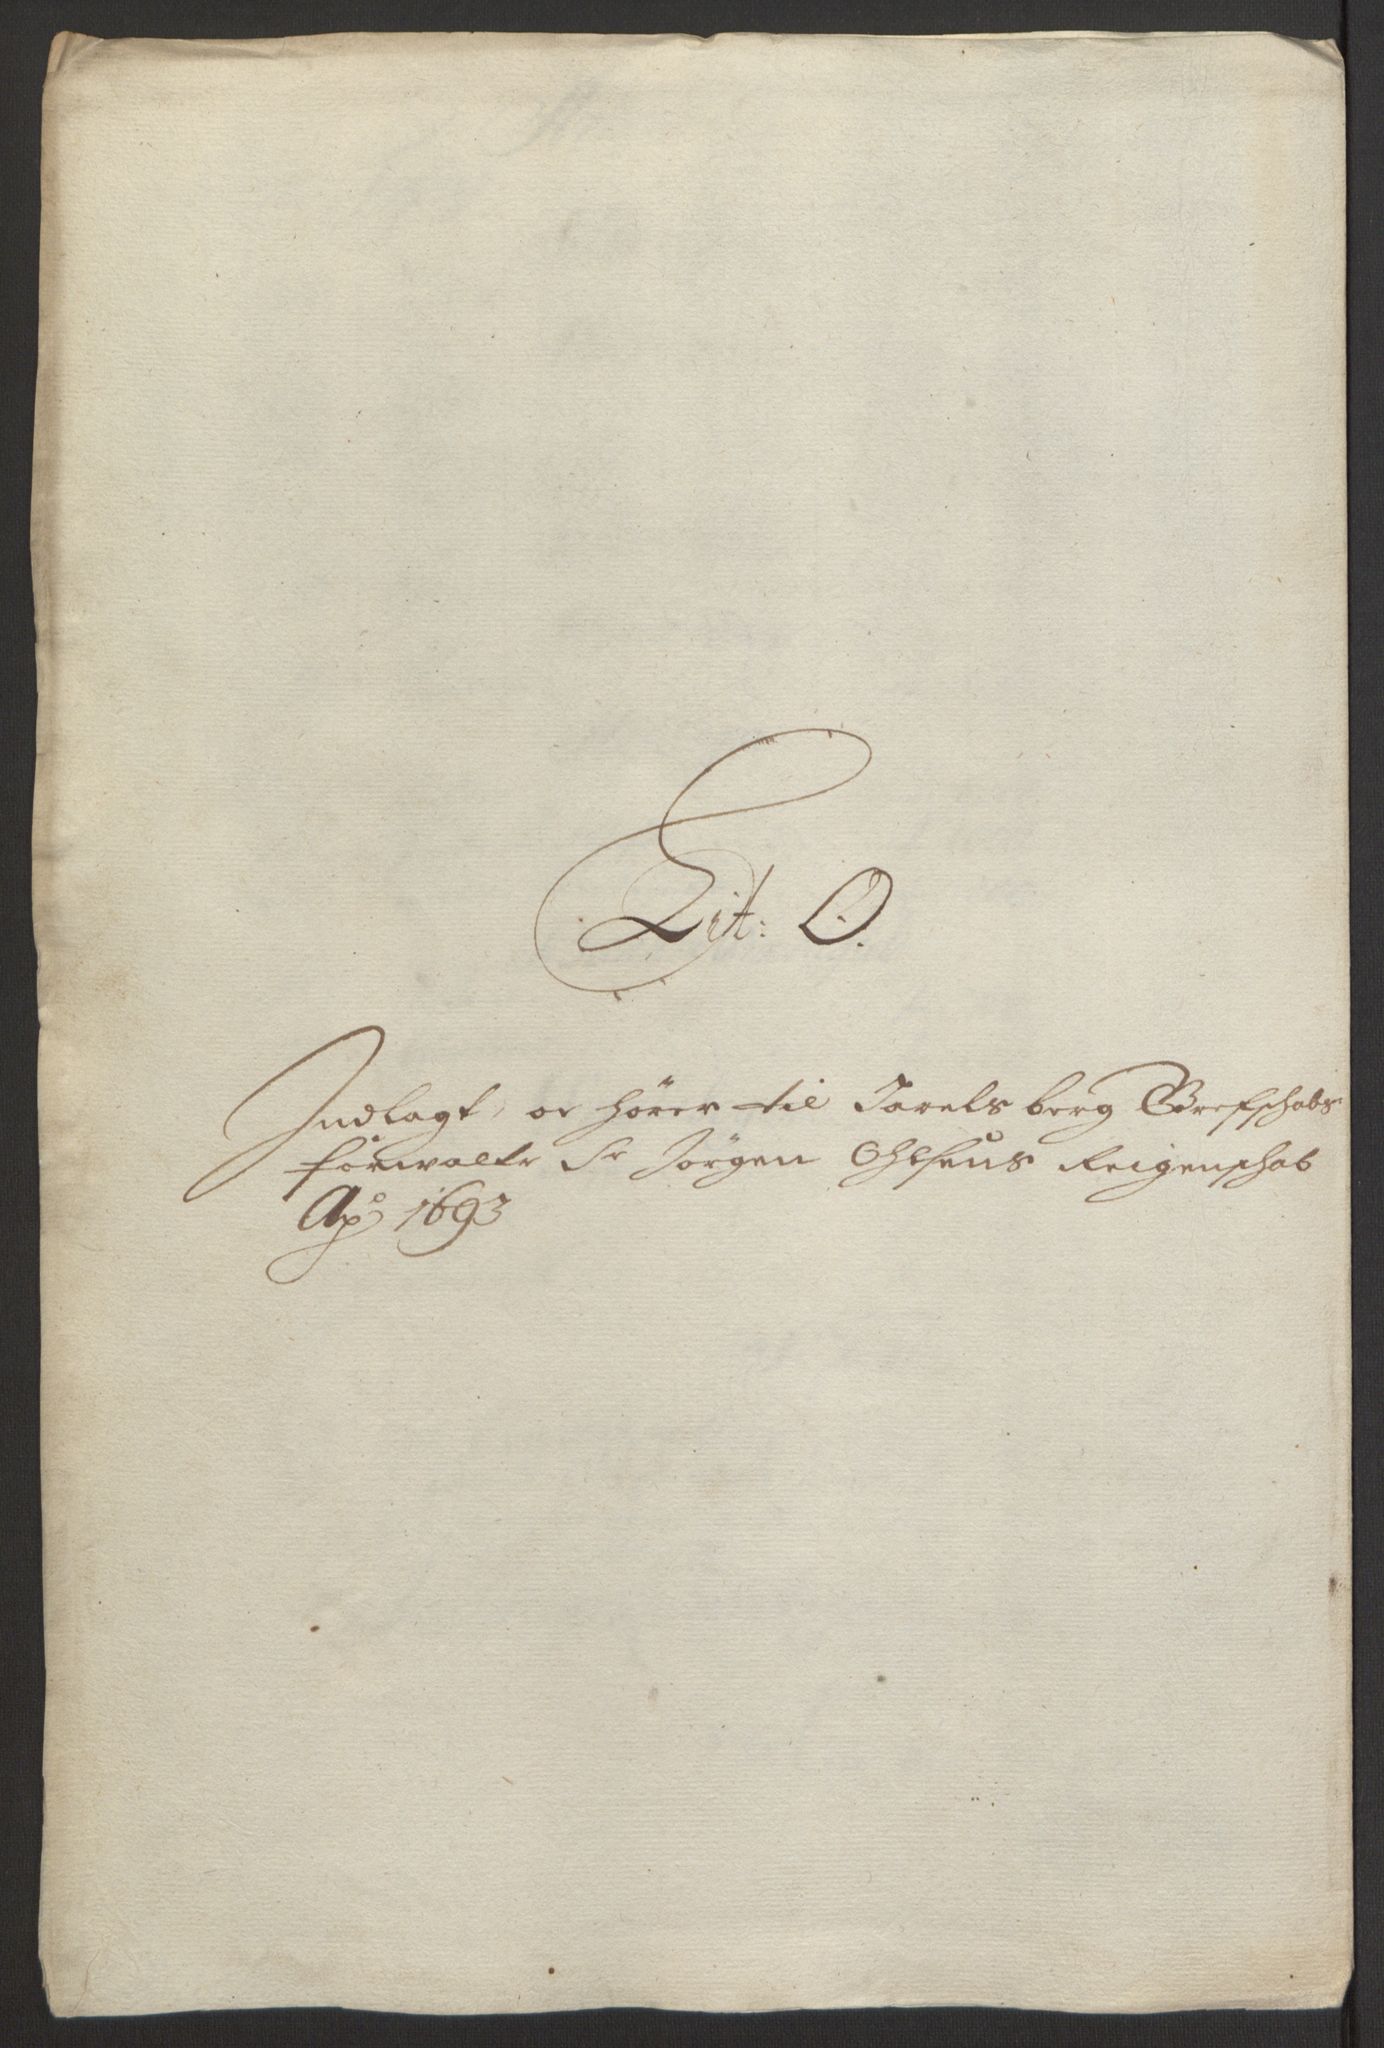 Lit: O.
Indlagt, oc hörer til Jarels berg Grefschabs
forwaltr Sr Jörgen Ohlsens Reigenschab
Ao 1693